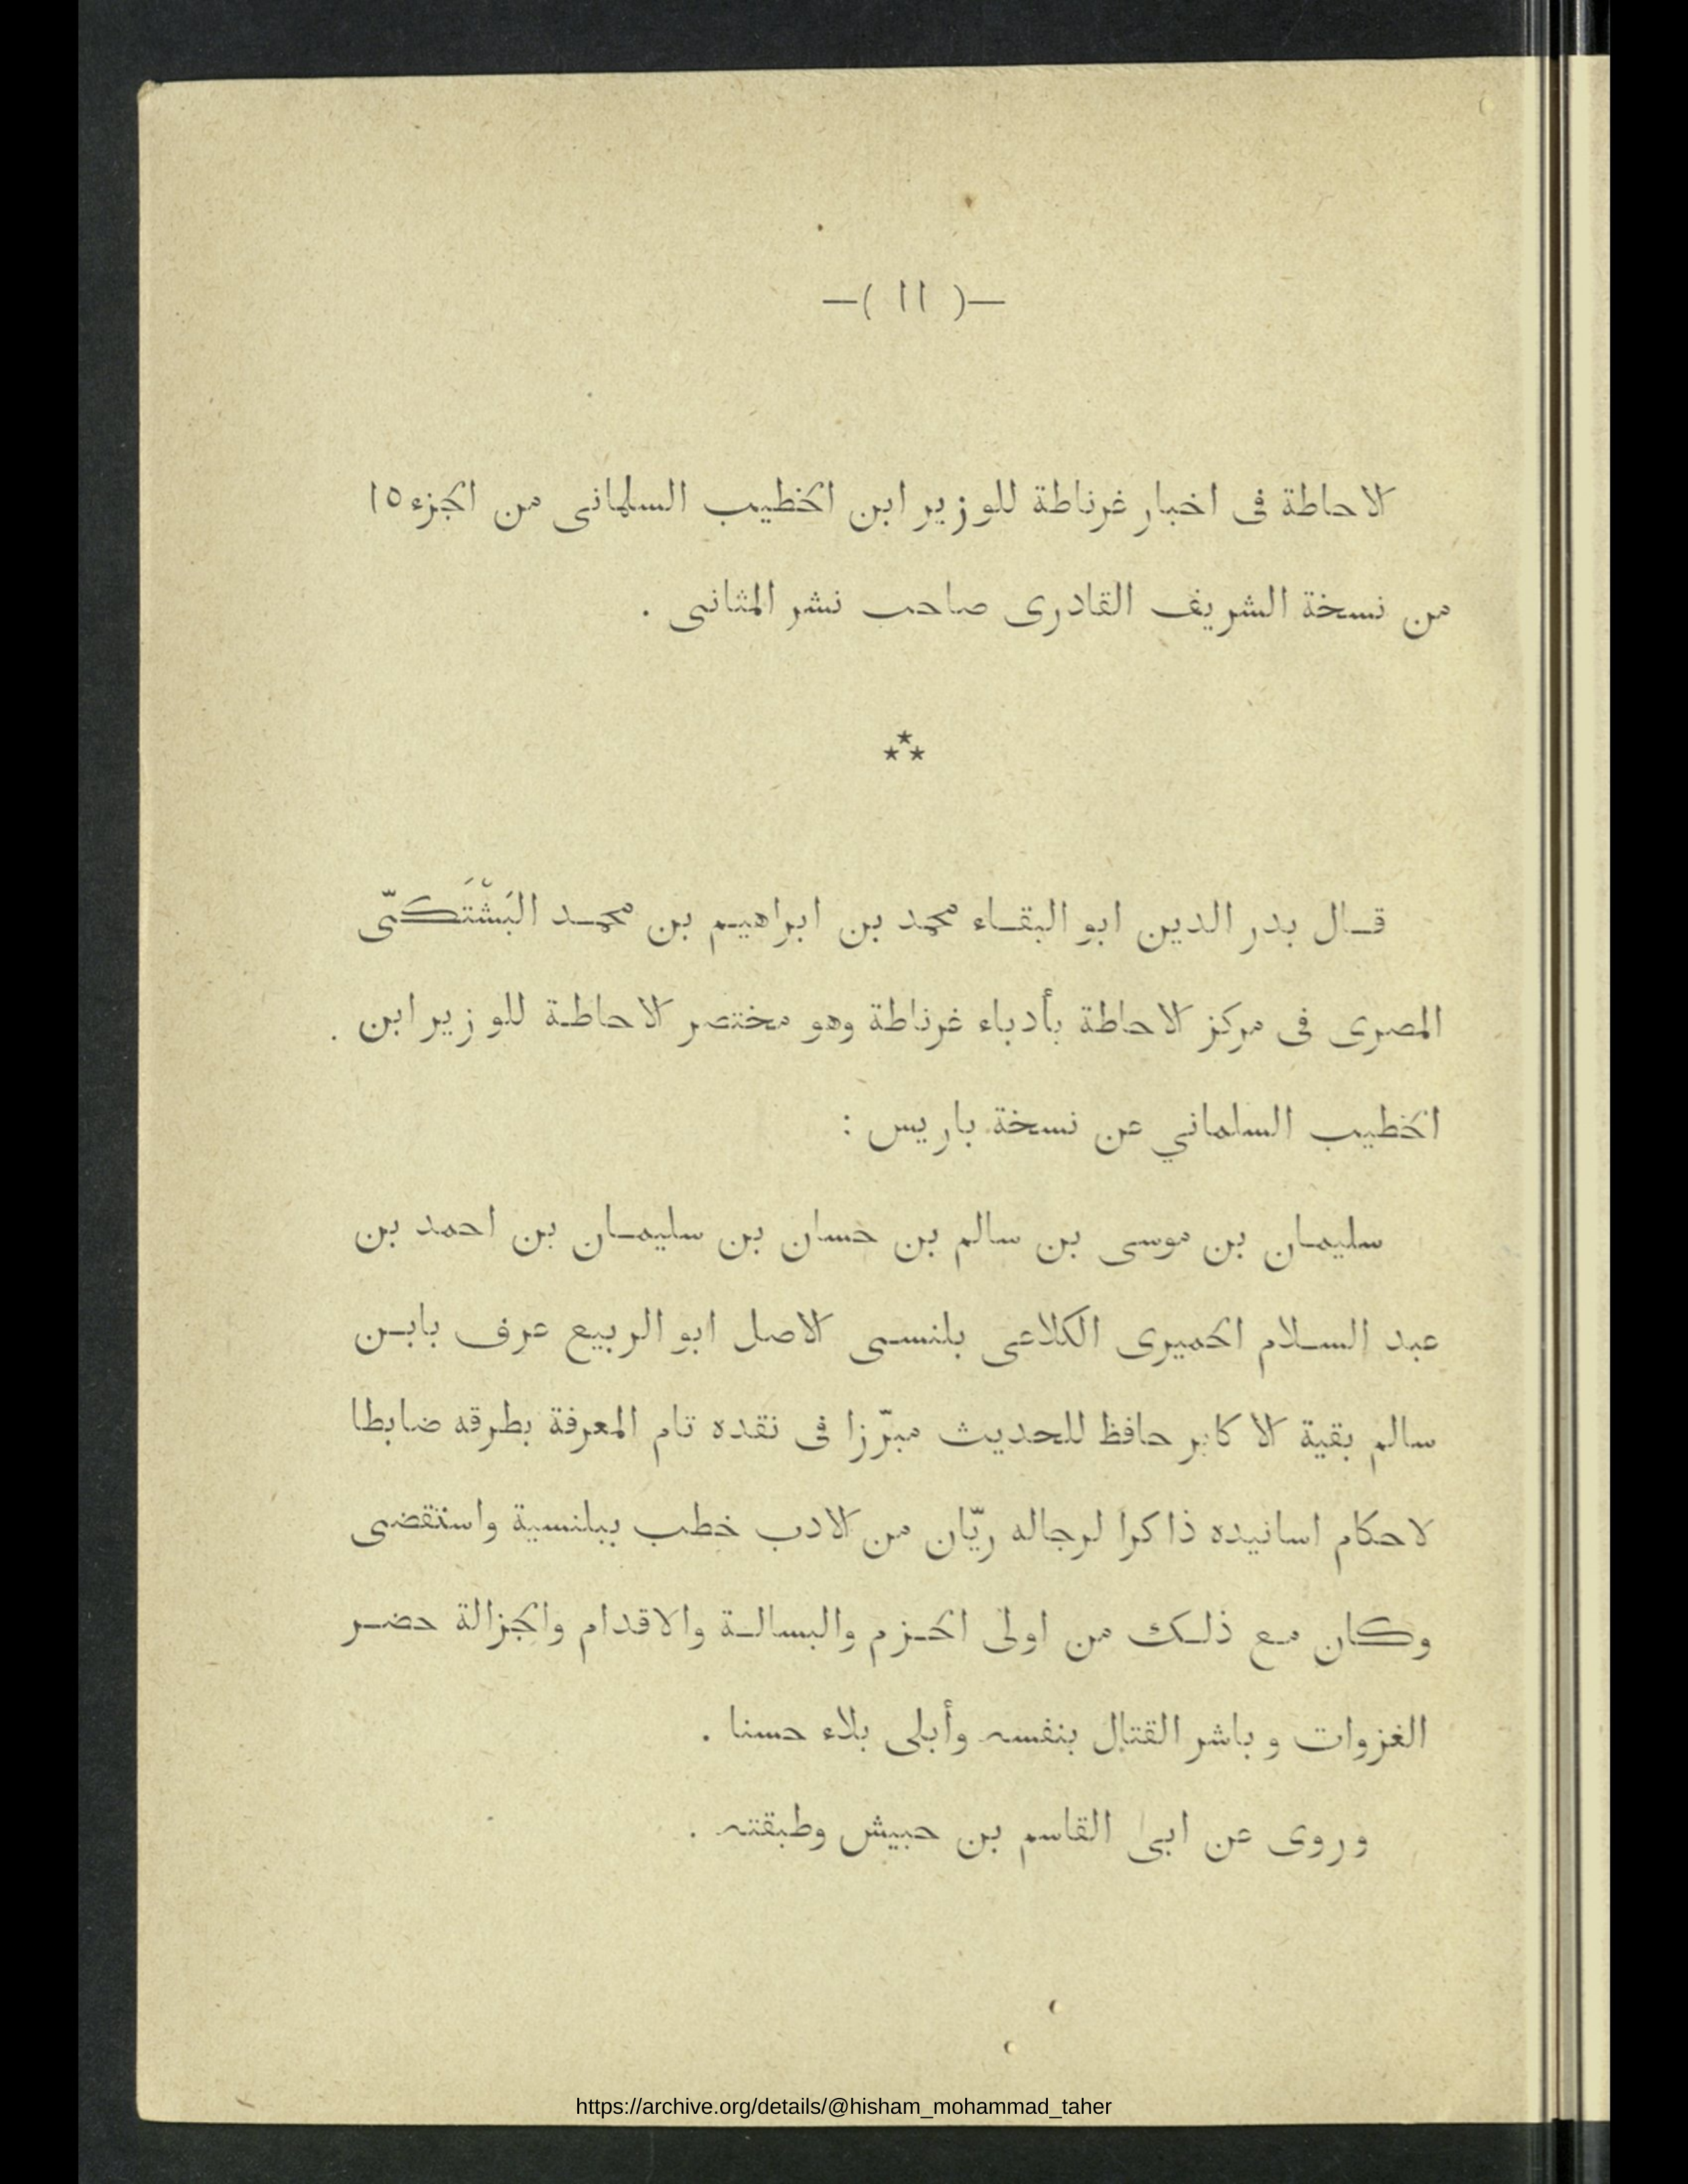 —( ١١ )—
الاحاطة فى اخبار غرناطة للوزير ابن الخطيب السلمانى من الجزء ١٥
من نسخة الشريف القادرى صاحب نشر المثانى .
***
قـال بدر الدين ابو البقـاء محمد بن ابراهيم بن محمـد البَشْتَكـىّ
المصرى فى مركز الاحاطة بأدباء غرناطة وهو مختصر الاحاطة للوزير ابن
الخطيب السلماني عن نسخة باريس :
سليمـان بن موسى بن سالم بن حسان بن سليمـان بن احمد بن
عبد السـلام الحميرى الكلاعى بلنسـى الاصل ابو الربيع عرف بابـن
سالم بقية الاكابر حافظ للحديث مبرّزا فى نقده تام المعرفة بطرقه ضابطا
لاحكام اسانيده ذاكرا لرجاله ريّان من الادب خطب ببلنسية واستقضى
وكان مـع ذلـك من اولى الحـزم والبسالـة والاقدام والجزالة حضـر
الغزوات وباشر القتال بنفسه وأبلى بلاء حسنا .
وروى عن ابى القاسم بن حبيش وطبقته .
https://archive.org/details/@hisham_mohammad_taher